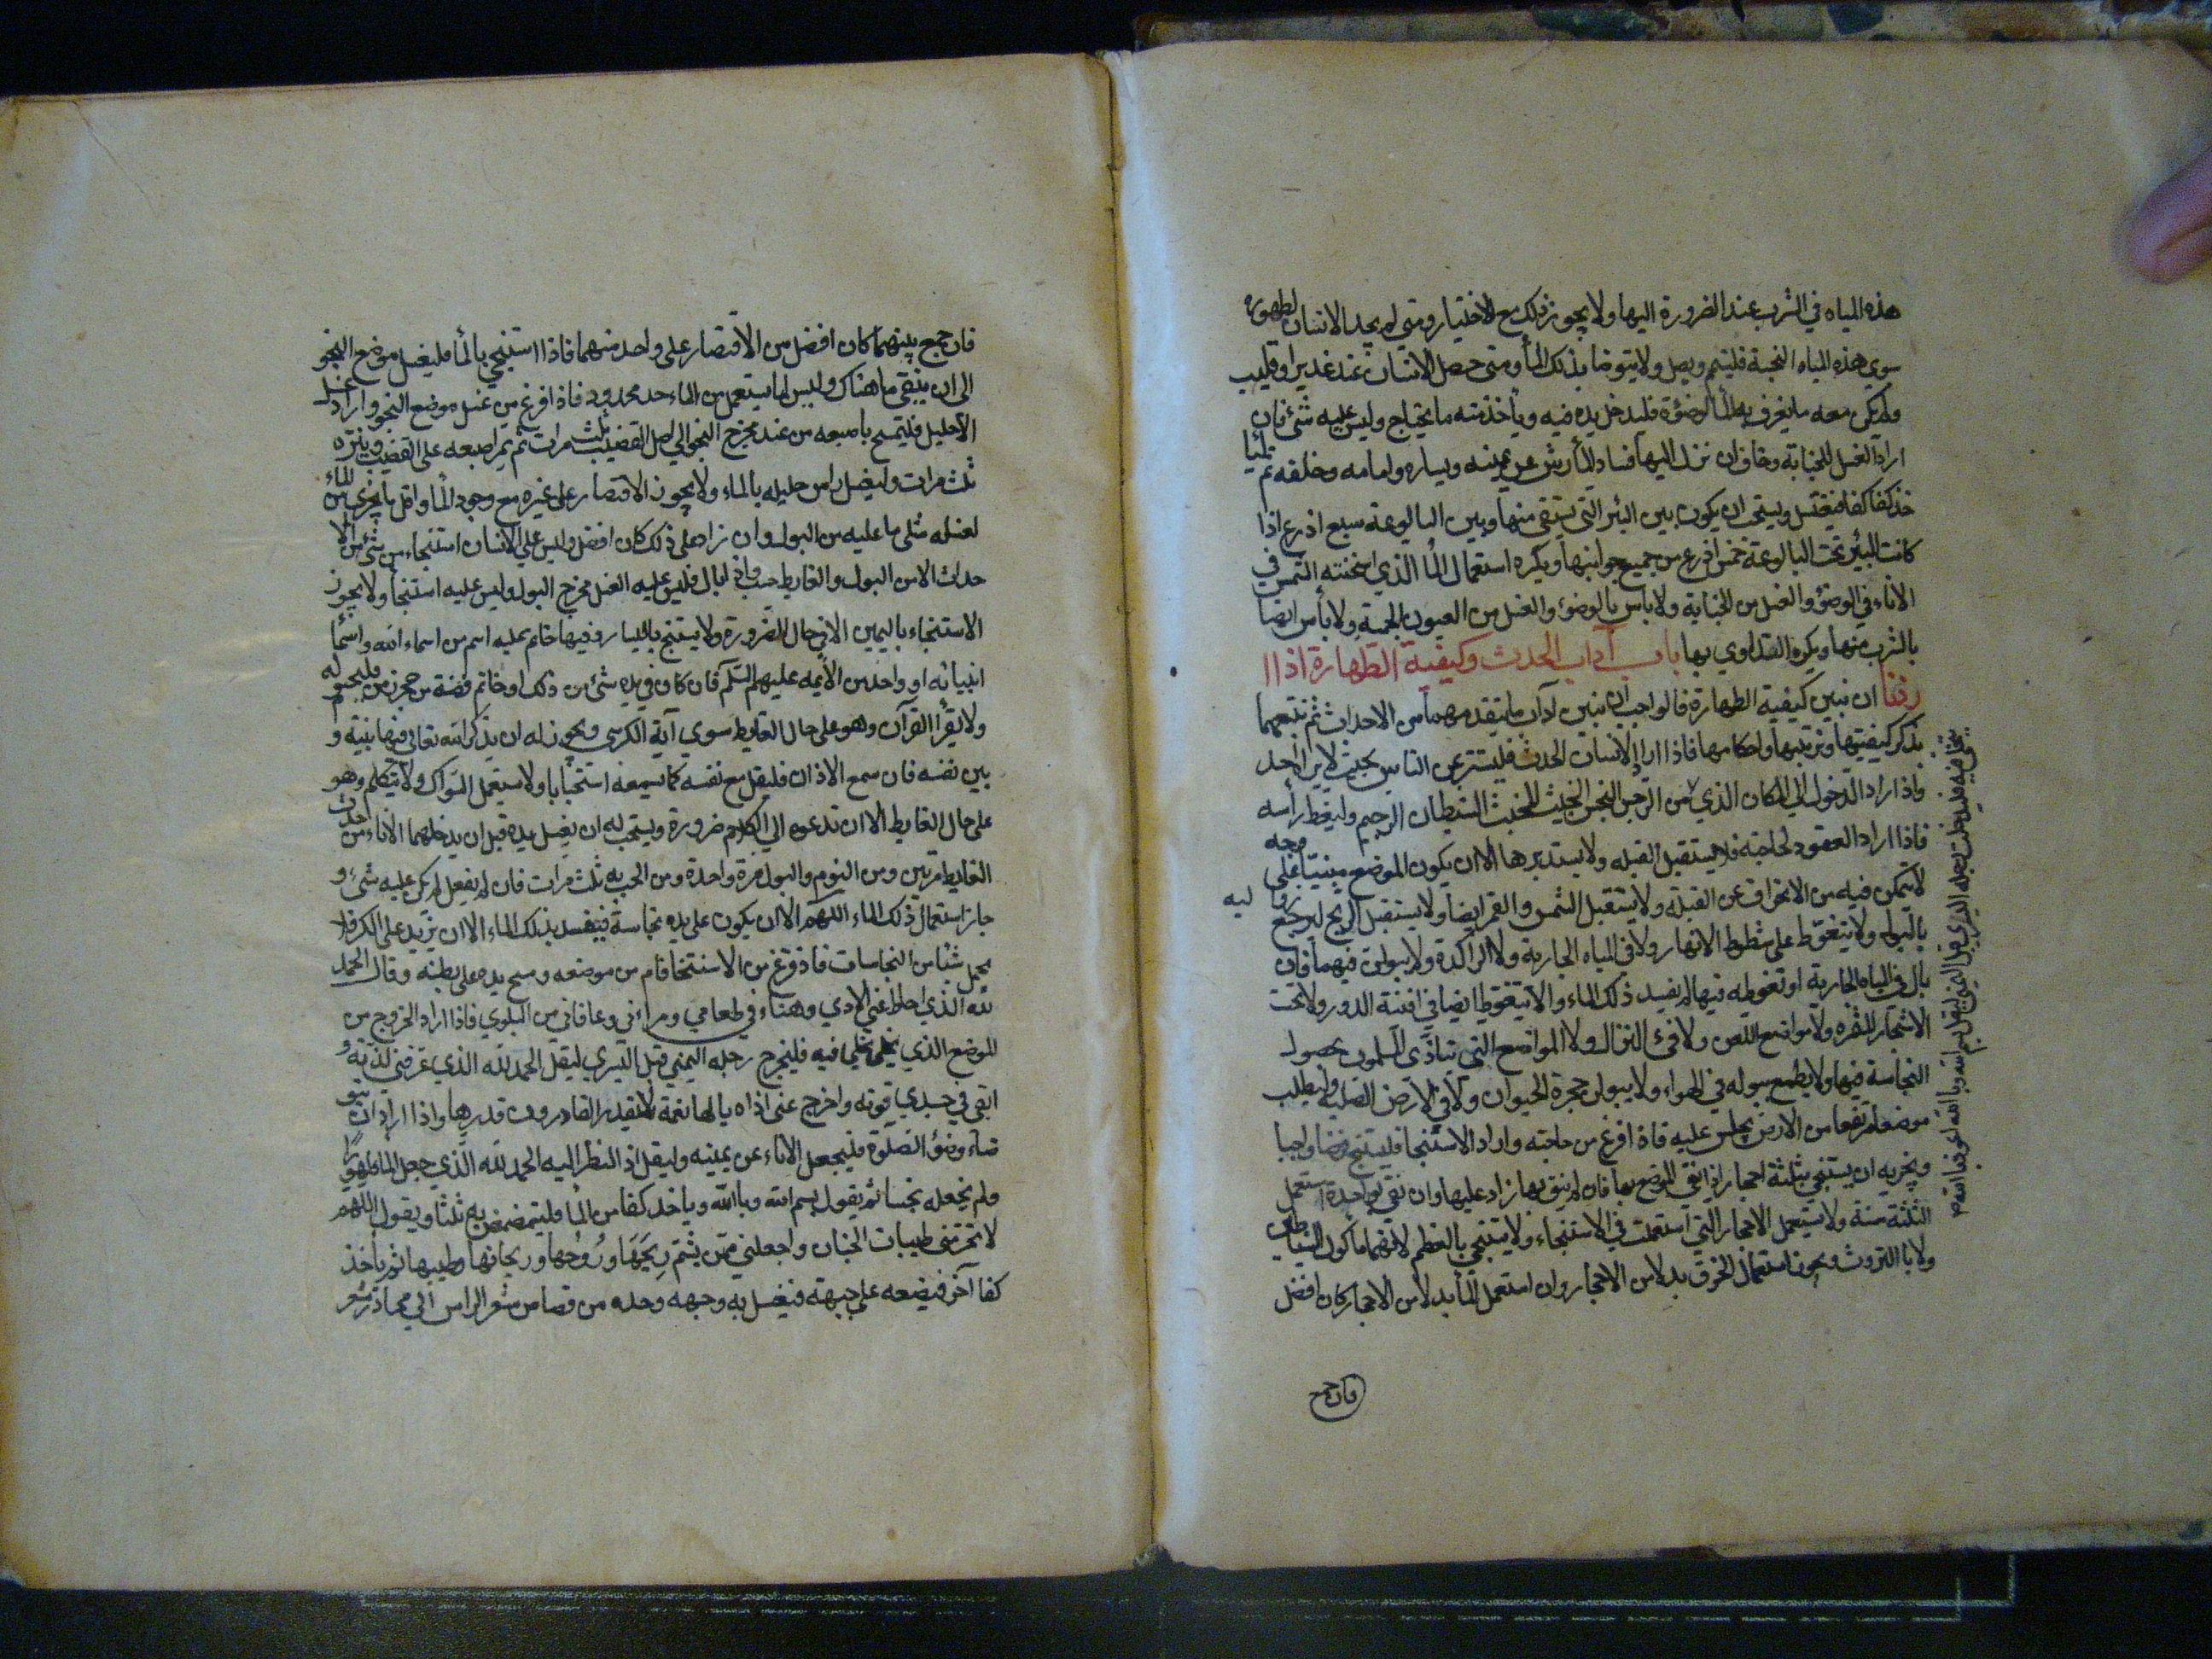 هذه المياه في الشرب عند الضرورة اليها ولا يجوز ذلك مع الاختيار ومتى لم يجد الانسان لطهوره
سوى هذه المياه النجسة فليتيمم ويصل ولا يتوضا بذلك المأ ومتى حصل الانسان عند غدير او قليب
ولم يكن معه ما يغرف به المأ لوضوئه فليدخل يده فيه وياخذ منه ما يحتاج وليس عليه شئ فان
اراد الغسل للجنابة وخاف ان نزل اليها فساد المأ رش عن يمينه ويساره وامامه وخلفه ثم
خذ كفا كفا فيغتسل ويستحب ان يكون بين البئر التي يستقى منها وبين البالوعة سبع اذرع اذا
كانت البئر تحت البالوعة خمس اذرع من جميع جوانبها ويكره استعمال المأ الذي اسخنته الشمس في
الاناء في الوضوء والغسل من الجنابة ولا باس بالوضوء والغسل من العيون الحمية ولا بأس ايضا
بالشرب منها ويكره التداوي بها باب آداب الحدث وكيفية الطهارة اذا ا
ردنا ان نبين كيفية الطهارة فالواجب ان نبين آداب ما يتقدمها من الاحداث ثم نتبعها
بذكر كيفيتها وترتيبها واحكامها فاذا اراد الانسان الحدث فليستتر عن الناس بحيث لا يراه احد
واذا اراد الدخول الى المكان الذي من الرجس النجس الخبيث المخبث الشيطان الرجيم وليغط رأسه
فاذا اراد القعود لحاجته فلا يستقبل القبله ولا يستدبرها الا ان يكون الموضع مبنيا على وجه
لا يتمكن فيه من الانحراف عن القبلة ولا يستقبل الشمس والقمر ايضا ولا يستقبل الريح
بالبول ولا يتغوط على شطوط الانهار ولا في المياه الجارية ولا الراكدة ولا يبولن فيهما فان
بال في المياه الجارية او تغوط فيها لم يفسد ذلك الماء والا يتغوط ايضا في افنية الدور ولا تحت
الاشجار المثمره ولا مواضع اللعن ولا فئ النزال ولا المواضع التي يتاذى المسلمون بحصول
النجاسة فيها ولا يطمح ببوله في الهواء ولا يبولن في جحرة الحيوان ولا في الارض الصلبة وليطلب
موضعا مرتفعا من الارض يجلس عليه فاذا فرغ من حاجته واراد الاستنجا فليستنج فرضا واجبا
ويجزيه ان يستنجي بثلثة احجار اذا نقى الموضع بها فان لم ينق بها زاد عليها وان نقى بواحدة استعمل
الثلثة سنة ولا يستعمل الاحجار التي استعملت في الاستنجاء ولا يستنجي بالعظم
ولا بالروث ويجوز استعمال الخرق بدلا من الاحجار وان استعمل المأ بدلا من الاحجار كان افضل
فان جمع
فان جمع بينهما كان افضل من الاقتصار على واحد منهما فاذا استنجي بالمأ فليغسل موضع النجو
الى ان ينقى ما هناك وليس لما يستعمل من الماء حد محدود فاذا فرغ من غسل موضع النجو واراد غسل
الاحليل فليمسح باصبعه من عند مخرج النجو الى اصل القضيب ثلث مرات ثم يمر اصبعه على القضيب وينتره
ثلث مرات وليغسل راس احليله بالماء ولا يجوز الاقتصار على غيره مع وجود المأ واقل ما يجزى من الماء
لغسله مثلى ما عليه من البول وان زاد على ذلك كان افضل وليس على الانسان استنجاء من شئ من الا
حداث الا من البول والغايط حسب واذا بال فليس عليه الغسل مخرج البول وليس عليه استنجأ ولا يجوز
الاستنجاء باليمين الا في حال الضرورة ولا يستنج باليسار وفيها خاتم عليه اسم من اسماء الله واسمأ
انبيائه او واحد من الأيمه عليهم السلم فان كان في يده شئ من ذلك او خاتم فضة من حجر زمزم فليحوله
ولا يقرأ القرآن وهو على حال الغايط سوى آية الكرسي ويجوز له ان يذكر الله تعالى فيما بينه و
بين نفسه فان سمع الاذان فليقل مع نفسه كما يسمعه استحبابا ولا يستعمل السواك ولا يتكلم وهو
على حال الغايط الا ان تدعوه الى الكلام ضرورة ويستحب له ان يغسل يده قبل ان يدخلهما الاناء من حدث
الغايط مرتين ومن النوم والبول مرة واحدة ومن الجنابه ثلث مرات فان لم يفعل لم يكن عليه شئ و
جاز استعمال ذلك الماء اللهم الا ان يكون على يده نجاسة فيفسد بذلك الماء الا ان يزيد على الكر فلا
يحمل شئا من النجاسات فاذا فرغ من الاستنجا قام من موضعه ومسح يده على بطنه وقال الحمد
لله الذي اماط عني الاذى وهناء في طعامي وعافاني من البلوى فاذا اراد الخروج من
الموضع الذي تخلى فيه فليخرج رجله اليمنى قبل اليسرى ليقل الحمد لله الذي عرفنى لذته و
ابقى في جسدي قوته واخرج عنى اذاه يا لها نعمة لا يقدر القادرون قدرها واذا اراد ان يتو
ضاء وضؤ الصلوة فليجعل الاناء عن يمينه وليقل اذا النظر اليه الحمد لله الذي جعل المأ طهورًا
ولم يجعله نجسا ثم يقول بسم الله وبالله وياخذ كفا من المأ فليتمضمض به ثلثا ويقول اللهم
لا تحرمنى طيبات الجنان واجعلني ممن يشم رِيحَهَا ورُوُحها وريحانها وطيبها ثم يأخذ
كفا آخر فيضعه على جبهته فيغسل به وجهه وحده من قصاص شعر الراس الى محاذر شعر